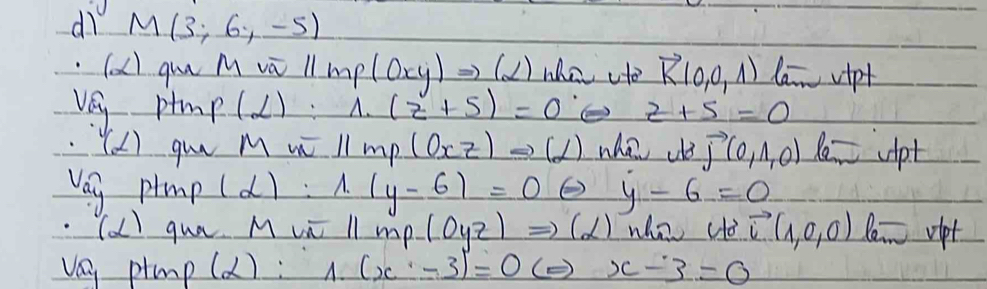 d) M(3; 6; -5)
. (α) qua M và // mp(Oxy) => (α) nhận vtơ k⃗(0,0,1) làm vtpt
Vậy ptmp(α) : 1.(z+5) = 0 <=> z+5 = 0
. (α) qua M và // mp(Oxz) => (α) nhận vtơ j⃗(0,1,0) làm vtpt
Vậy ptmp(α) : 1.(y-6) = 0 <=> y-6 = 0
. (α) qua M và // mp(Oyz) => (α) nhận vtơ i⃗(1,0,0) làm vtpt
Vậy ptmp(α) : 1.(x-3) = 0 <=> x-3 = 0